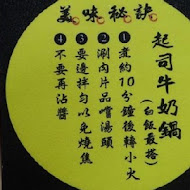 美味秘訣
起司牛奶鍋
(白飯最搭)
1 煮約10分鐘後轉小火
2 涮肉片品嚐湯頭
3 要邊拌勻以免燒焦
4 不要再沾醬